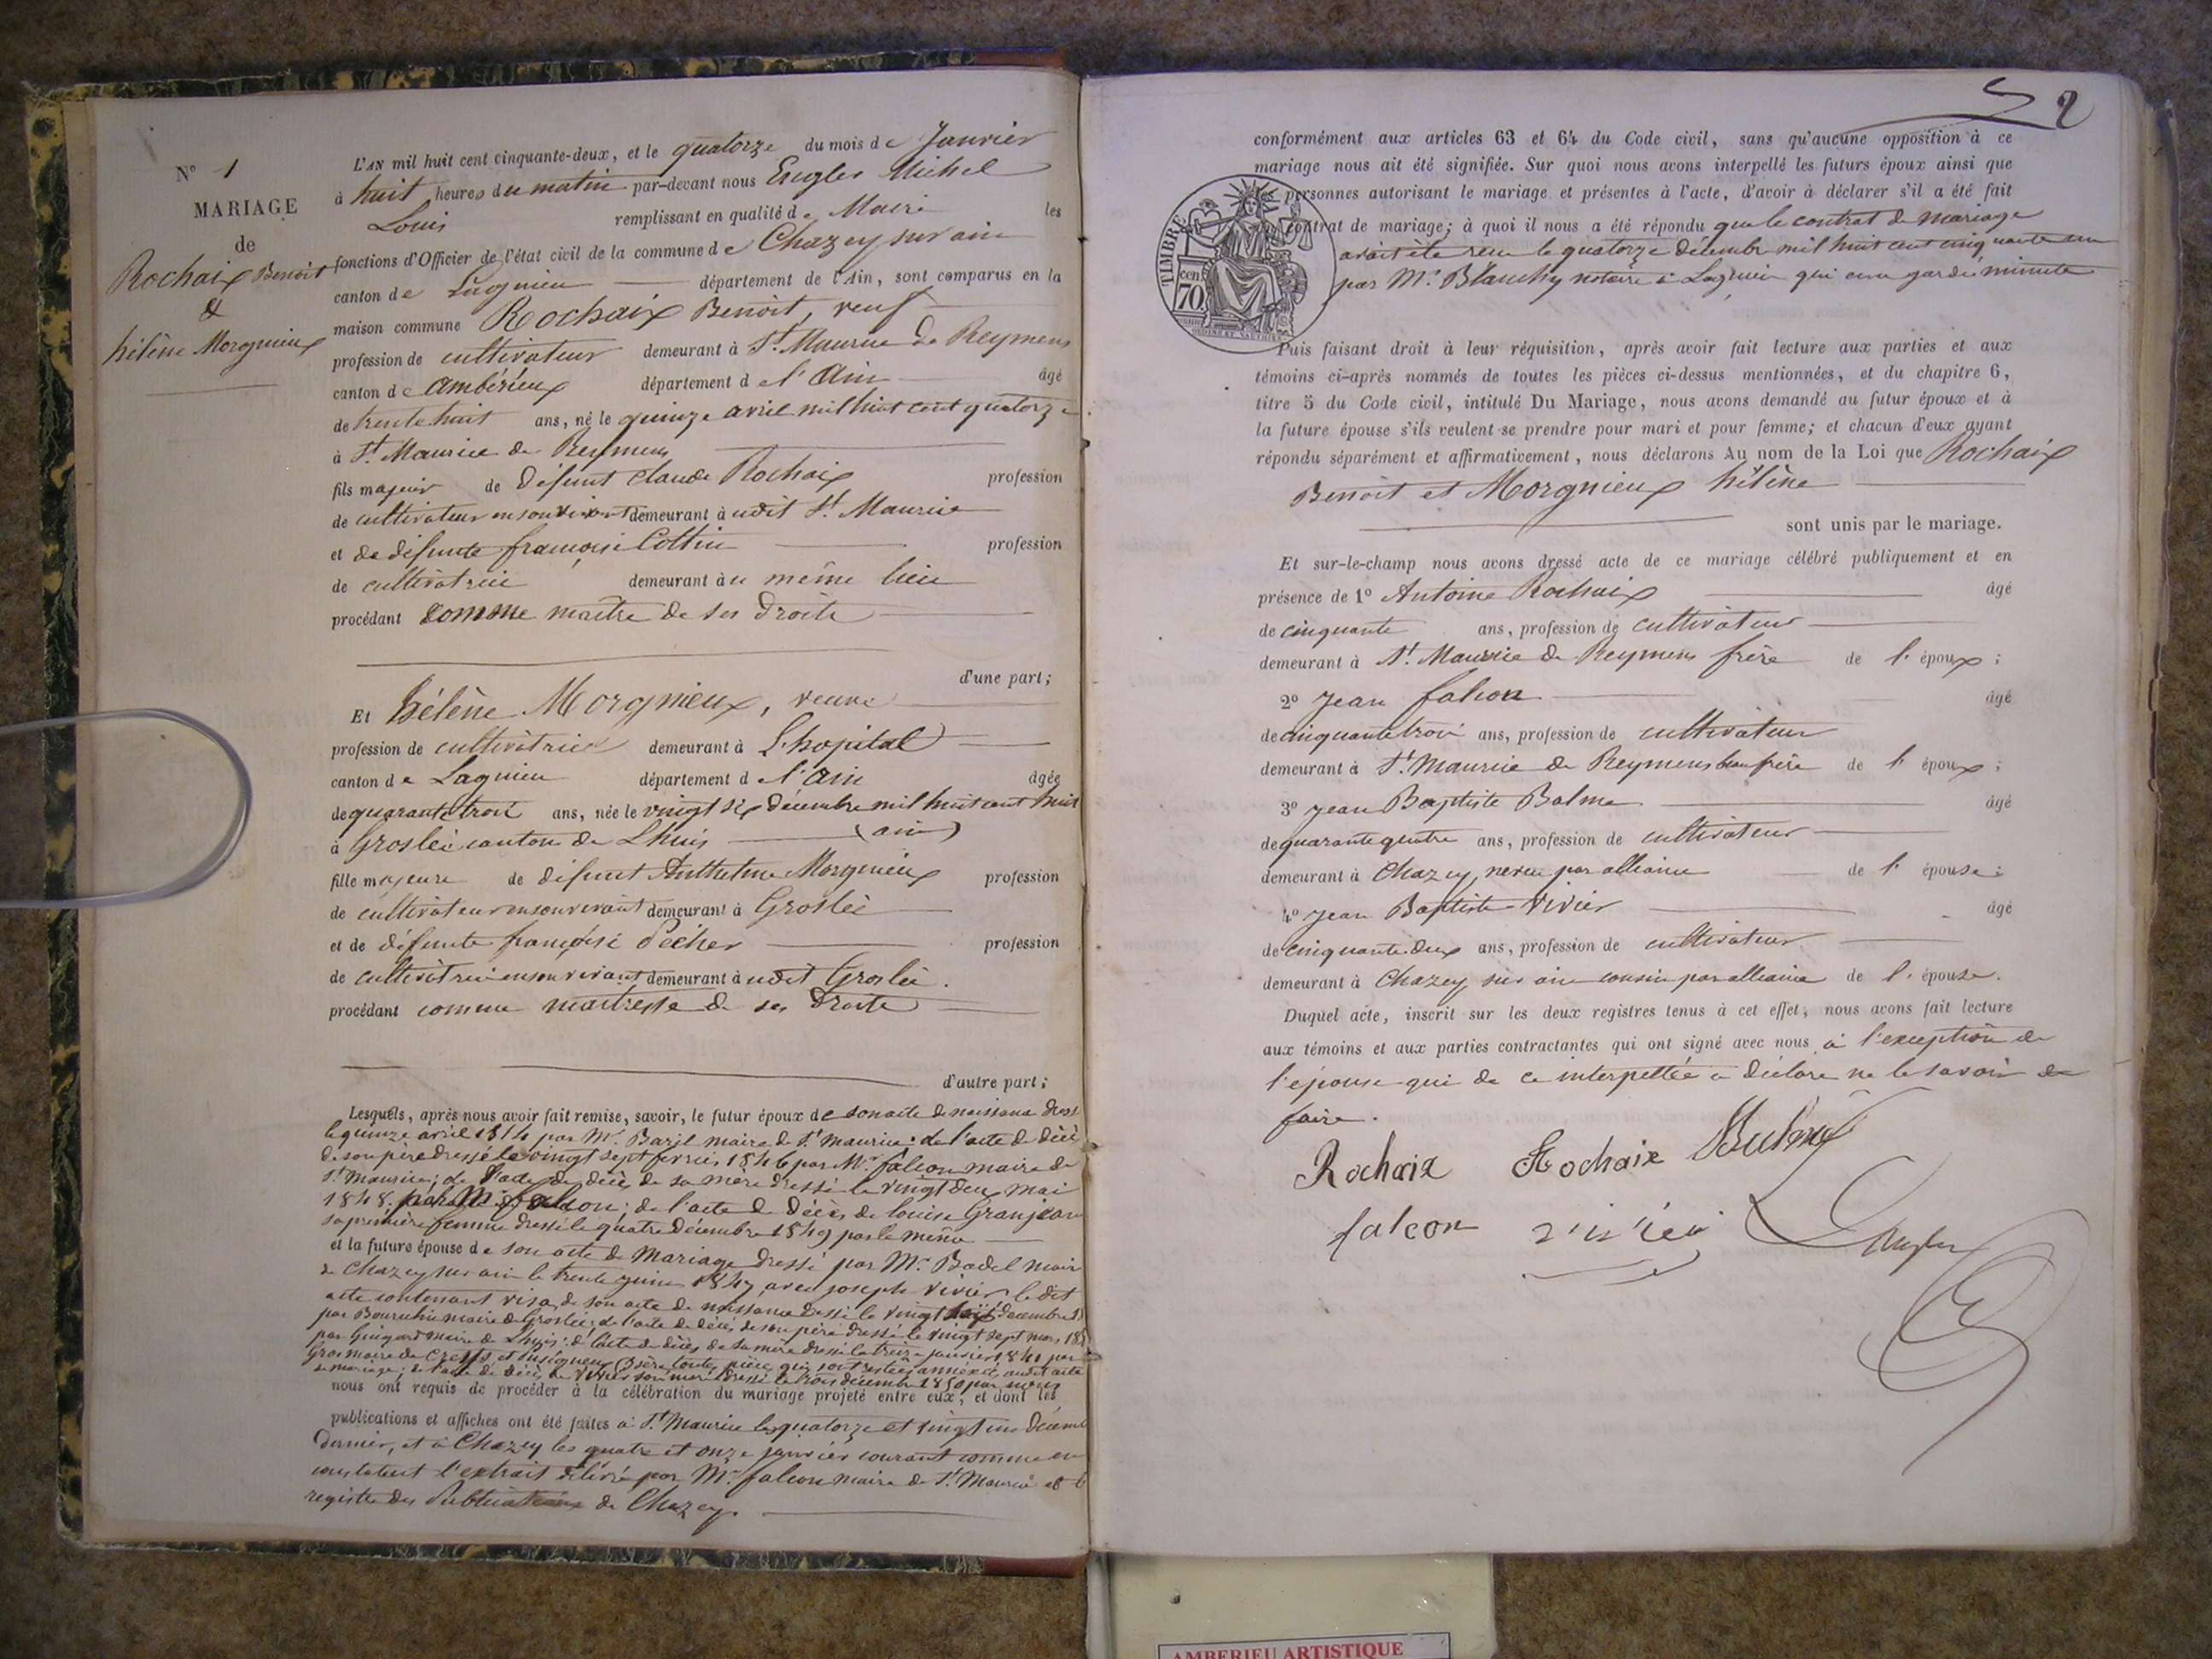 N° 1
MARIAGE
de
Rochaix Benoit
&
hélène Morgnieux
L'AN mil huit cent cinquante-deux, et le quatorze du mois de Janvier
à huit heures du matin par-devant nous Engler Michel
Louis remplissant en qualité de Maire les
fonctions d'Officier de l'état civil de la commune de Chazey sur ain
canton de Lagnieu département de l'Ain, sont comparus en la
maison commune Rochaix Benoit, veuf
profession de cultivateur demeurant à St. Maurice de Reymens
canton de ambérieux département de l'Ain âgé
de trente huit ans, né le quinze avril mil huit cent quatorze
à St. Maurice de Reymens
fils majeur de défunt Claude Rochaix profession
de cultivateur en son vivant demeurant à udit St. Maurice
et de défunte françoise Cottin profession
de cultivatrice demeurant àu même lieu
procédant comme maître de ses droits
d'une part;
Et hélène Morgnieux, veuve
profession de cultivatrice demeurant à L'hopital
canton de Lagnieu département de l'Ain âgée
de quarante trois ans, née le vingt six décembre mil huit cent huit
à Groslée canton de Lhuis (ain)
fille majeure de défunt Anthelme Morgnieux profession
de cultivateur en son vivant demeurant à Groslée
et de défunte françoise Pécher profession
de cultivatrice en son vivant demeurant à udit Groslée.
procédant comme maitresse de ses droits
d'autre part;
Lesquels, après nous avoir fait remise, savoir, le futur époux de son acte de naissance dressé
le quinze avril 1814 par Mr. Bazil maire de St. maurice; de l'acte de décès
de son père dressé le vingt sept fevrier 1846 par Mr. falcon maire de
St. Maurice; de l'acte de décès de sa mère dressé le vingt deux mai
1848 par Mr. falcon; de l'acte de décès de louise Granjean
sa première femme dressé le quatre décembre 1849 par le même
et la future épouse de son acte de Mariage dressé par Mr. Bodel maire
de Chazey sur ain le trente juin 1847 avec joseph Vivier le dit
acte contenant visa de son acte de naissance dressé le vingt sept decembre
par maire de Groslée; de l'acte de décès de son père dressé le vingt sept mars
par Guigard maire de Lhuis; de l'acte de décès de sa mère dressé le treize janvier 1841 par
Gros maire de toutes pièces qui sont restées annexées audit acte
de mariage; de l'acte de décès de Vivier son mari dressé le trois décembre 1850 par nous
nous ont requis de procéder à la célébration du mariage projeté entre eux, et dont les
publications et affiches ont été faites à St. Maurice les quatorze et vingt un décemb
dernier, et à Chazey les quatre et onze janvier courant comme en
constatent l'extrait délivré par Mr. falcon maire de St. Maurice et l
registre des Publications de Chazey.
2
conformément aux articles 63 et 64 du Code civil, sans qu'aucune opposition à ce
mariage nous ait été signifiée. Sur quoi nous avons interpellé les futurs époux ainsi que
les personnes autorisant le mariage et présentes à l'acte, d'avoir à déclarer s'il a été fait
contrat de mariage; à quoi il nous a été répondu que le contrat de mariage
avait été recu le quatorze décembre mil huit cent cinquante un
par Mr. Blanchy notaire à Lagnieu qui en a gardé minute
TIMBRE
cen
70.
Puis faisant droit à leur réquisition, après avoir fait lecture aux parties et aux
témoins ci-après nommés de toutes les pièces ci-dessus mentionnées, et du chapitre 6,
titre 5 du Code civil, intitulé Du Mariage, nous avons demandé au futur époux et à
la future épouse s'ils veulent se prendre pour mari et pour femme; et chacun d'eux ayant
répondu séparément et affirmativement, nous déclarons Au nom de la Loi que Rochaix
Benoit et Morgnieux hélène
sont unis par le mariage.
Et sur-le-champ nous avons dressé acte de ce mariage célébré publiquement et en
présence de 1° Antoine Rochaix âgé
de cinquante ans, profession de cultivateur
demeurant à St. Maurice de Reymens frère de l'époux;
2° Jean falcon âgé
de cinquante trois ans, profession de cultivateur
demeurant à St. Maurice de Reymens beau frère de l'époux;
3° Jean Baptiste Balme âgé
de quarante quatre ans, profession de cultivateur
demeurant à Chazey, neveu par alliance de l'épouse;
4° Jean Baptiste Vivier âgé
de cinquante deux ans, profession de cultivateur
demeurant à Chazey sur ain cousin par alliance de l'épouse.
Duquel acte, inscrit sur les deux registres tenus à cet effet, nous avons fait lecture
aux témoins et aux parties contractantes qui ont signé avec nous à l'exception de
l'épouse qui de ce interpellée a déclaré ne le savoir de
faire.
Rochaix Rochaix Balme
falcon vivier Engler
AMBERIEU ARTISTIQUE